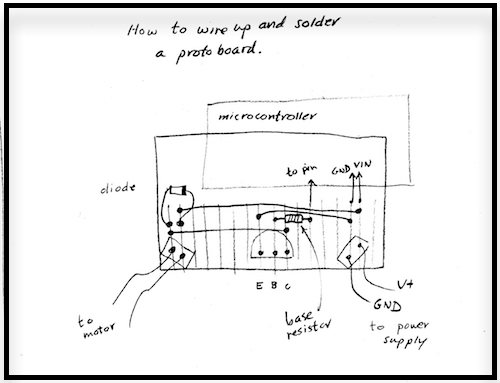 How to wire up and solder
a protoboard.
microcontroller
to pin GND VIN
diode
E B C
V+
GND
to
motor
base
resistor
to power
supply